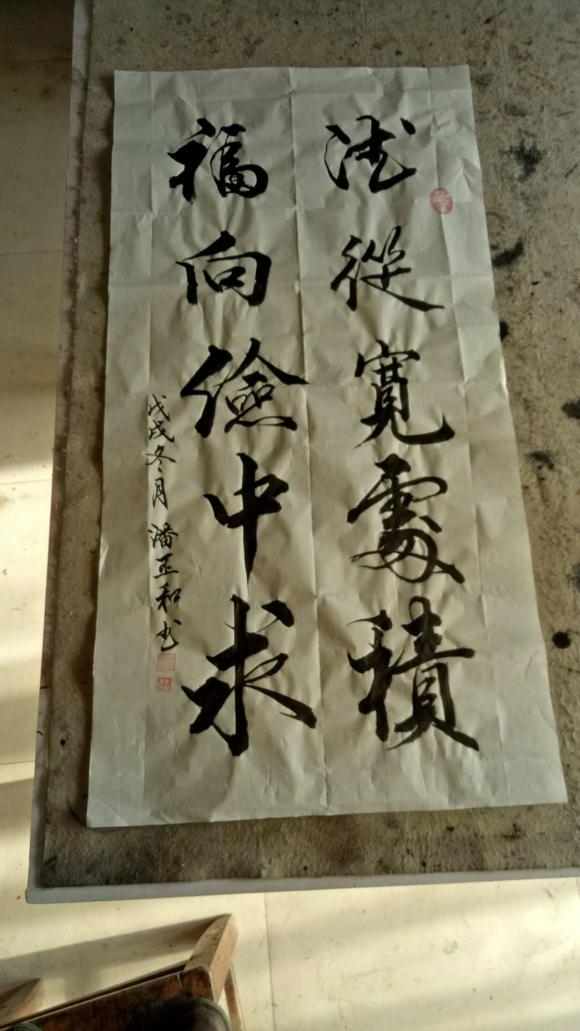 德從寬處積
福向儉中求
戊戌冬月 潘正和书